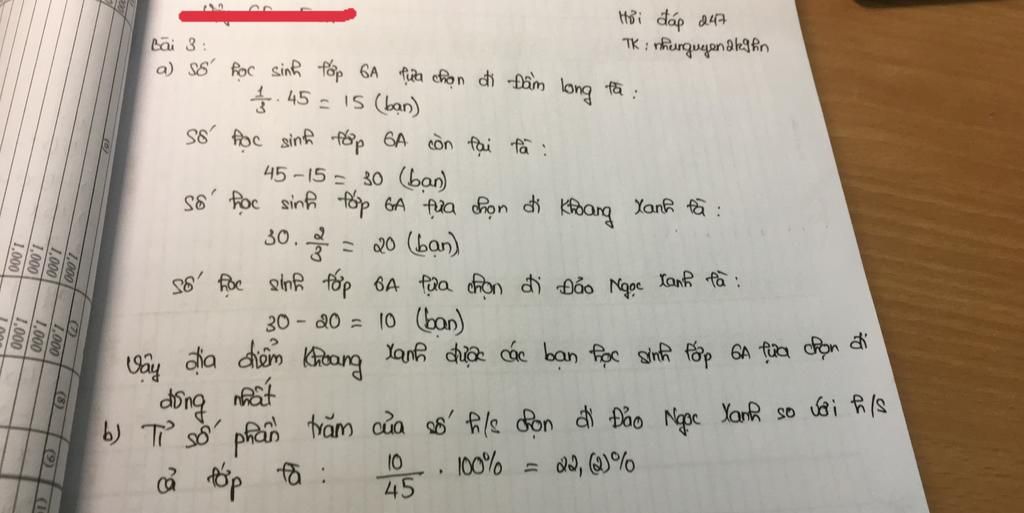 Hỏi đáp 247
TK: nhunguyen2k9hn
Bài 3:
a) Số học sinh lớp 6A lựa chọn đi Đầm Long là:
1/3 . 45 = 15 (bạn)
Số học sinh lớp 6A còn lại là:
45 - 15 = 30 (bạn)
Số học sinh lớp 6A lựa chọn đi Khoang Xanh là:
30 . 2/3 = 20 (bạn)
Số học sinh lớp 6A lựa chọn đi Đảo Ngọc Xanh là:
30 - 20 = 10 (bạn)
Vậy địa điểm Khoang Xanh được các bạn học sinh lớp 6A lựa chọn đi
đông nhất
b) Tỉ số phần trăm của số h/s chọn đi Đảo Ngọc Xanh so với h/s
cả lớp là: 10/45 . 100% = 22,(2)%
(6)
(7)
1.000 1.000
1.000 1.000
1.000 1.000
(8)
(9)